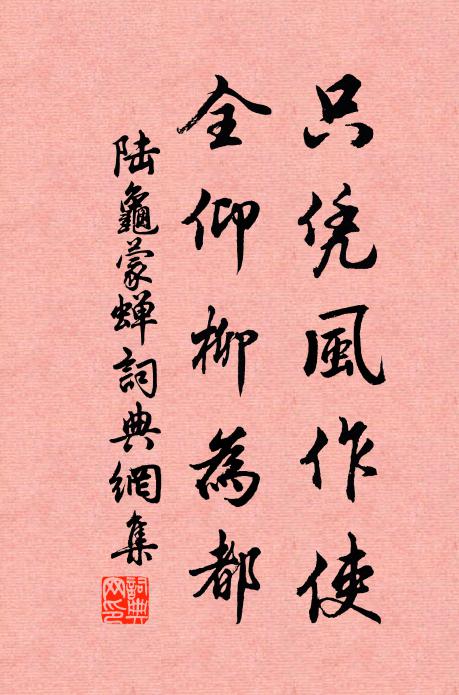 只凭風作使
全仰柳為都
陸龜蒙蝉詞典網集
詞典网印